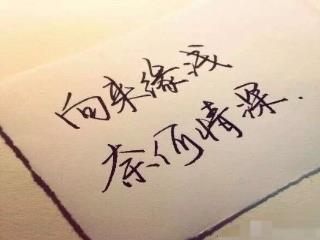 向来缘浅
奈何情深.